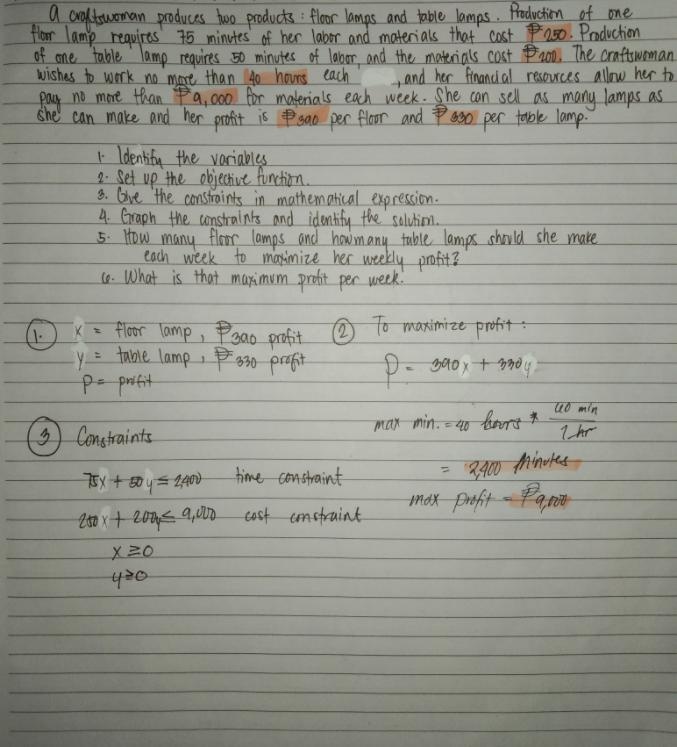 A craftswoman produces two products : floor lamps and table lamps. Production of one
floor lamp requires 75 minutes of her labor and materials that cost ₱250. Production
of one table lamp requires 50 minutes of labor, and the materials cost ₱200. The craftswoman
wishes to work no more than 40 hours each , and her financial resources allow her to
pay no more than ₱9,000 for materials each week. She can sell as many lamps as
she can make and her profit is ₱390 per floor and ₱330 per table lamp.
1. Identify the variables
2. Set up the objective function.
3. Give the constraints in mathematical expression.
4. Graph the constraints and identify the solution.
5. How many floor lamps and how many table lamps should she make
each week to maximize her weekly profit?
6. What is that maximum profit per week.
1. x = floor lamp , ₱390 profit
y = table lamp , ₱330 profit
P = profit
2 To maximize profit :
P = 390x + 330y
3 Constraints
75x + 50y ≤ 2,400 time constraint
250x + 200y ≤ 9,000 cost constraint
x ≥ 0
y ≥ 0
max min. = 40 hours * 60 min
1 hr
= 2,400 minutes
max profit = ₱9,000